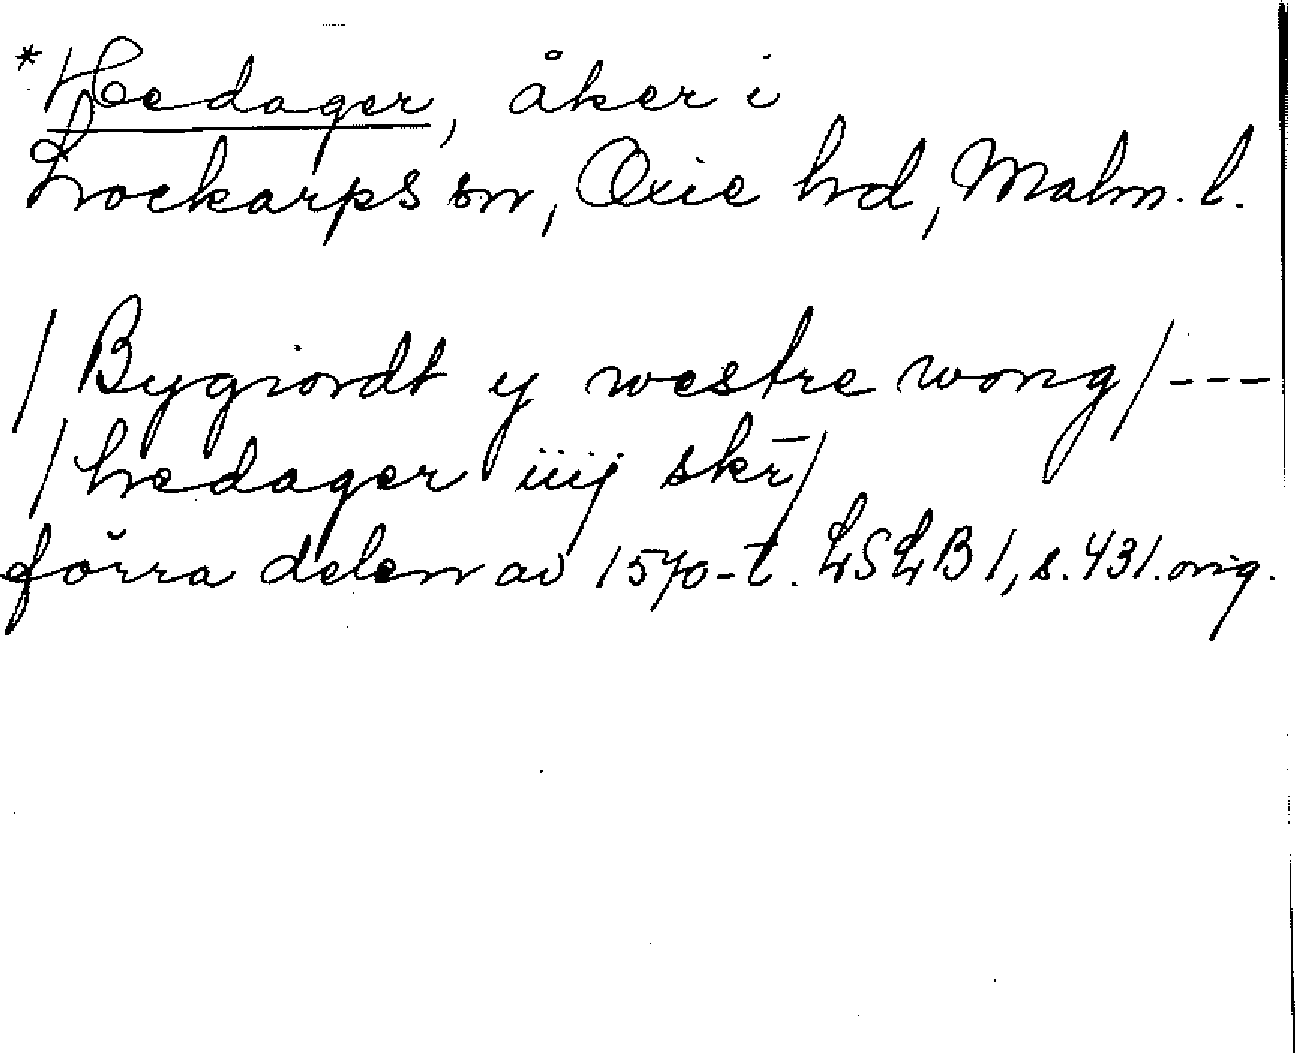 *Hedager, åker i
Lockarps sn, Oxie hd, Malm. l.
/Bygiordt y westre wong/---
/hedager iiij skr̄/
förra delen av 1570-t. LSLB 1, s. 431. orig.